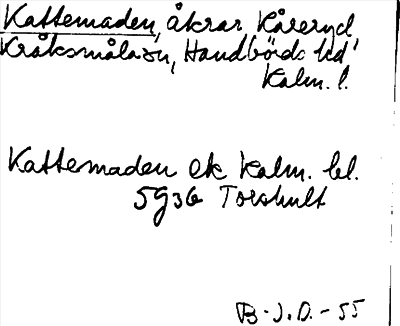 Kattemaden, åkrar, Kåreryd,
Kråksmåla sn, Handbörds hd
Kalm. l.
Kattemaden ek Kalm. bl.
5936 Torshult
B-J.O.-55